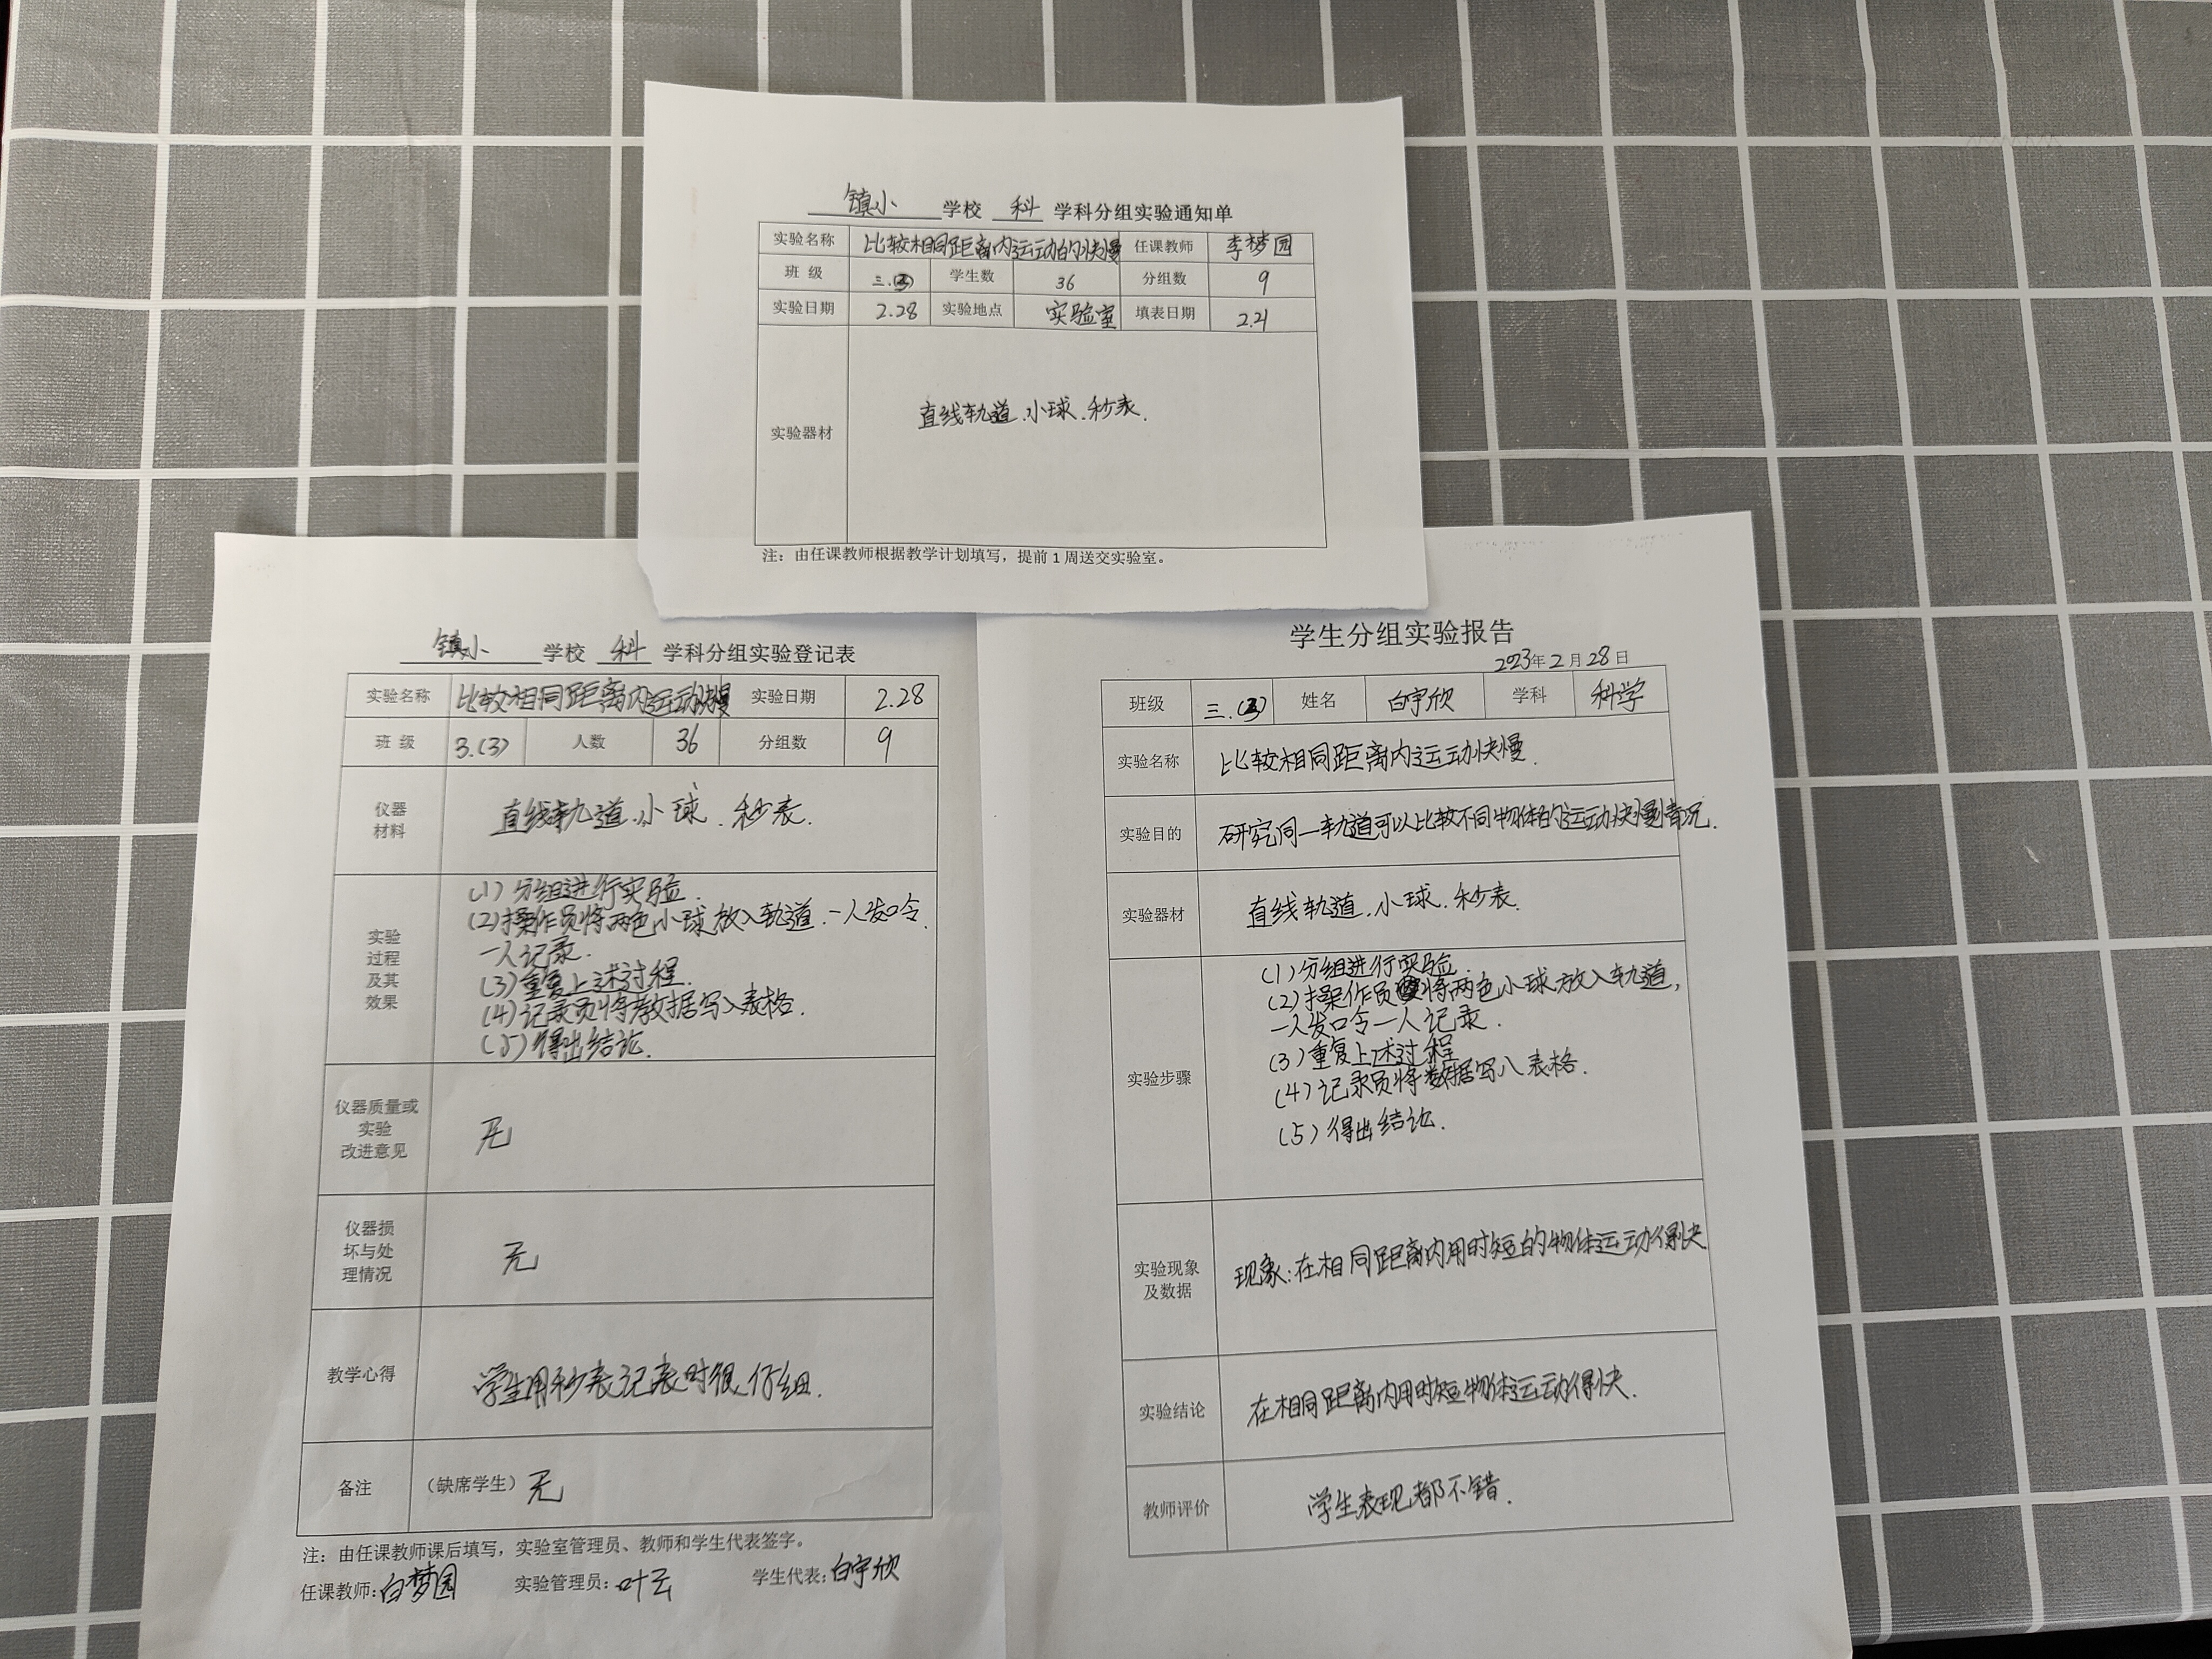 镇小 学校 科 学科分组实验通知单
实验名称 比较相同距离内运动的快慢 任课教师 李梦园
班 级 三.(3) 学生数 36 分组数 9
实验日期 2.28 实验地点 实验室 填表日期 2.21
实验器材 直线轨道.小球.秒表.
注：由任课教师根据教学计划填写，提前 1 周送交实验室。
镇小 学校 科 学科分组实验登记表
实验名称 比较相同距离内运动快慢 实验日期 2.28
班 级 3.(3) 人数 36 分组数 9
仪器
材料
直线轨道.小球.秒表.
实验
过程
及其
效果
(1)分组进行实验.
(2)操作员将两色小球放入轨道.一人发口令.
一人记录.
(3)重复上述过程.
(4)记录员将数据写入表格.
(5)得出结论.
仪器质量或
实验
改进意见
无
仪器损
坏与处
理情况
无
教学心得 学生用秒表记表时很仔细.
备注 （缺席学生）无
注：由任课教师课后填写，实验室管理员、教师和学生代表签字。
任课教师：白梦园 实验管理员：叶云 学生代表：白宇欣
学生分组实验报告
2023年2月28日
班级 三.(3) 姓名 白宇欣 学科 科学
实验名称 比较相同距离内运动快慢.
实验目的 研究同一轨道可以比较不同物体的运动快慢情况.
实验器材 直线轨道.小球.秒表.
实验步骤
(1)分组进行实验.
(2)操作员将两色小球放入轨道,
一人发口令一人记录.
(3)重复上述过程
(4)记录员将数据写入表格.
(5)得出结论.
实验现象
及数据
现象:在相同距离内用时短的物体运动得快
实验结论 在相同距离内用时短物体运动得快.
教师评价 学生表现都不错.